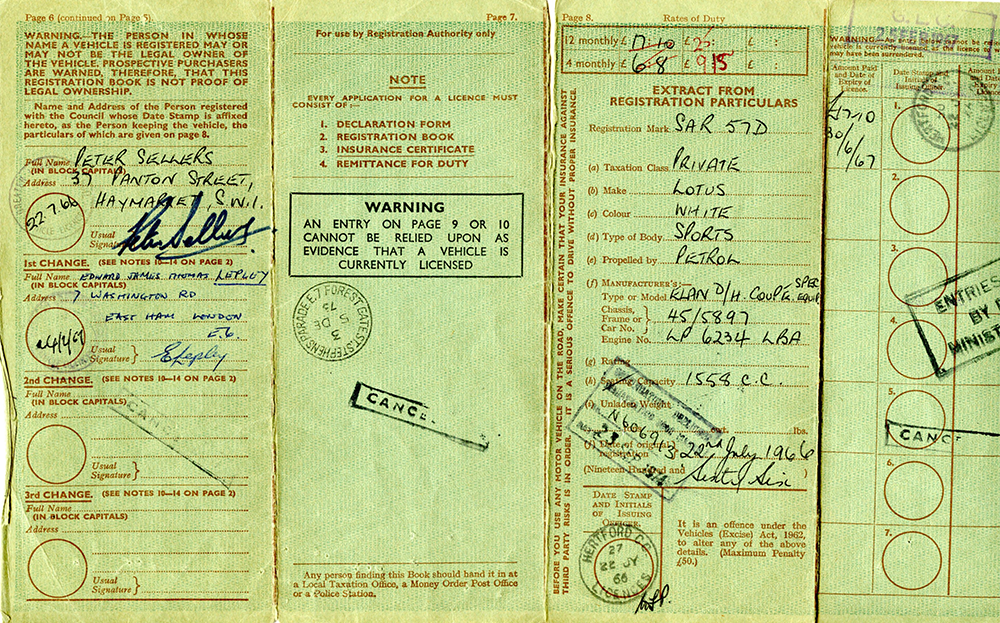 Page 6 (continued on Page 5).
WARNING.—THE PERSON IN WHOSE
NAME A VEHICLE IS REGISTERED MAY OR
MAY NOT BE THE LEGAL OWNER OF
THE VEHICLE. PROSPECTIVE PURCHASERS
ARE WARNED, THEREFORE, THAT THIS
REGISTRATION BOOK IS NOT PROOF OF
LEGAL OWNERSHIP.
Name and Address of the Person registered
with the Council whose Date Stamp is affixed
hereto, as the Person keeping the vehicle, the
particulars of which are given on page 8.
Full Name PETER SELLERS
(IN BLOCK CAPITALS)
Address 37 PANTON STREET,
HAYMARKET, S.W.1.
22.7.66
Usual
Signature } Peter Sellers
1st CHANGE. (SEE NOTES 10—14 ON PAGE 2)
Full Name EDWARD JAMES THOMAS LEPLEY
(IN BLOCK CAPITALS)
Address 7 WASHINGTON RD
EAST HAM LONDON
E6.
Usual
Signature } E Lepley
2nd CHANGE. (SEE NOTES 10—14 ON PAGE 2)
Full Name
(IN BLOCK CAPITALS)
Address
Usual
Signature }
3rd CHANGE. (SEE NOTES 10—14 ON PAGE 2)
Full Name
(IN BLOCK CAPITALS)
Address
Usual
Signature }
Page 7.
For use by Registration Authority only
NOTE
EVERY APPLICATION FOR A LICENCE MUST
CONSIST OF:—
1. DECLARATION FORM
2. REGISTRATION BOOK
3. INSURANCE CERTIFICATE
4. REMITTANCE FOR DUTY
WARNING
AN ENTRY ON PAGE 9 OR 10
CANNOT BE RELIED UPON AS
EVIDENCE THAT A VEHICLE IS
CURRENTLY LICENSED
ST STEPHENS PARADE E.7 FOREST GATE
5 DE
73
CANC
Any person finding this Book should hand it in at
a Local Taxation Office, a Money Order Post Office
or a Police Station.
BEFORE YOU USE ANY MOTOR VEHICLE ON THE ROAD, MAKE CERTAIN THAT YOUR INSURANCE AGAINST
THIRD PARTY RISKS IS IN ORDER. IT IS A SERIOUS OFFENCE TO DRIVE WITHOUT PROPER INSURANCE.
Page 8. Rates of Duty
12 monthly £ 17:10 £ 25: £ :
4 monthly £ 6:8 £ 9:15 £ :
EXTRACT FROM
REGISTRATION PARTICULARS
Registration Mark SAR 57D
(a) Taxation Class PRIVATE
(b) Make LOTUS
(c) Colour WHITE
(d) Type of Body SPORTS
(e) Propelled by PETROL
(f) MANUFACTURER'S:—
Type or Model ELAN D/H. COUPE. SPEC EQUIP
Chassis,
Frame or
Car No. } 45/5897
Engine No. LP 6234 LBA
(g) Rating
(h) Seating Capacity 1558 C.C.
(i) Unladen Weight
cwt. lbs.
(j) Date of original
registration } 22nd July 1966
(Nineteen Hundred and Sixty Six )
DATE STAMP
AND INITIALS
OF ISSUING
OFFICER.
HERTFORD C.C.
27
22 JY
66
LICENCES
It is an offence under the
Vehicles (Excise) Act, 1962,
to alter any of the above
details. (Maximum Penalty
£50.)
G.L.C.
WARNING
Amount Paid
and Date of
Expiry of
Licence.
Date Stamp
Issuing Officer.
£17-10
30/6/67
1.
2.
3.
4.
5.
6.
7.
ENTRIES
BY
MINIST
CANC